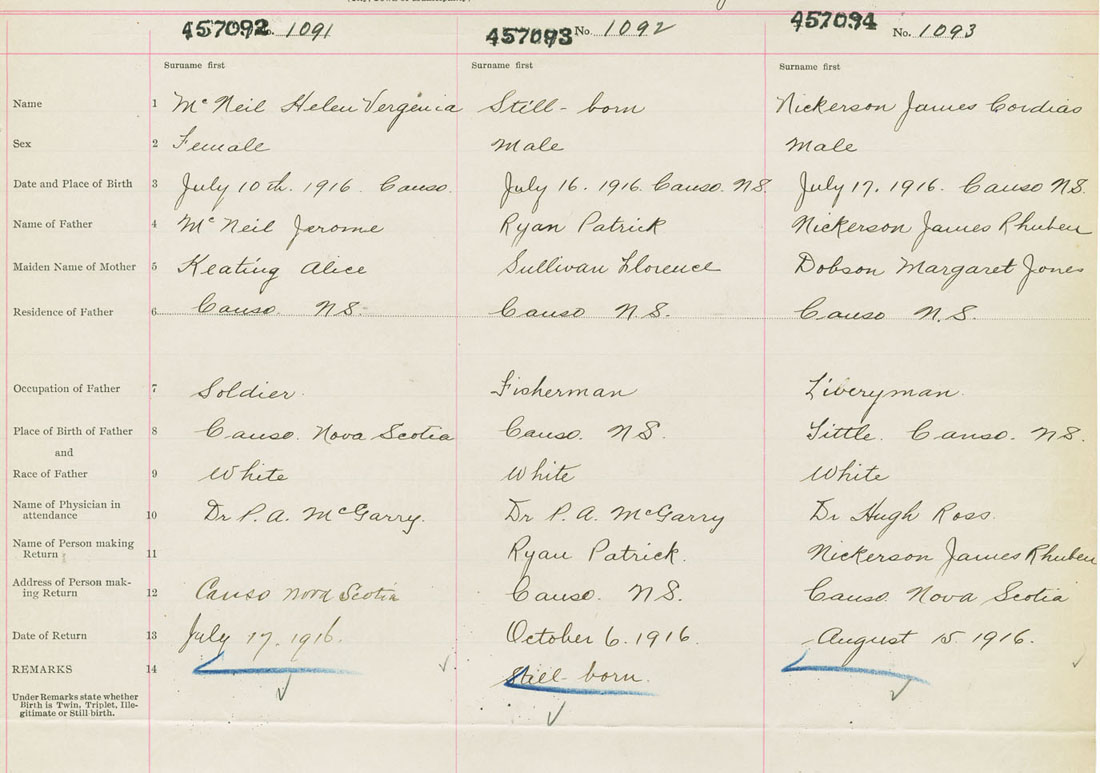 457092 No. 1091 457093 No. 1092 457094 No. 1093
Surname first Surname first Surname first
Name 1 McNeil Helen Vergenia Still-born Nickerson James Cordias
Sex 2 Female Male Male
Date and Place of Birth 3 July 10th. 1916. Canso. July 16. 1916. Canso. N.S. July 17, 1916. Canso N.S.
Name of Father 4 McNeil Jerome Ryan Patrick Nickerson James Rhuben
Maiden Name of Mother 5 Keating Alice Sullivan Florence Dobson Margaret Jones
Residence of Father 6 Canso. N.S. Canso N.S. Canso N.S.
Occupation of Father 7 Soldier. Fisherman Liveryman.
Place of Birth of Father 8 Canso. Nova Scotia Canso. N.S. Tittle. Canso. N.S.
and
Race of Father 9 White White White
Name of Physician in
attendance 10 Dr P. A. McGarry. Dr P. A. McGarry Dr Hugh Ross.
Name of Person making
Return 11 Ryan Patrick. Nickerson James Rhuben
Address of Person mak-
ing Return 12 Canso Nova Scotia Canso. N.S. Canso. Nova Scotia
Date of Return 13 July 17. 1916. October 6. 1916. August 15. 1916.
REMARKS 14 Still-born.
Under Remarks state whether
Birth is Twin, Triplet, Ille-
gitimate or Still birth.